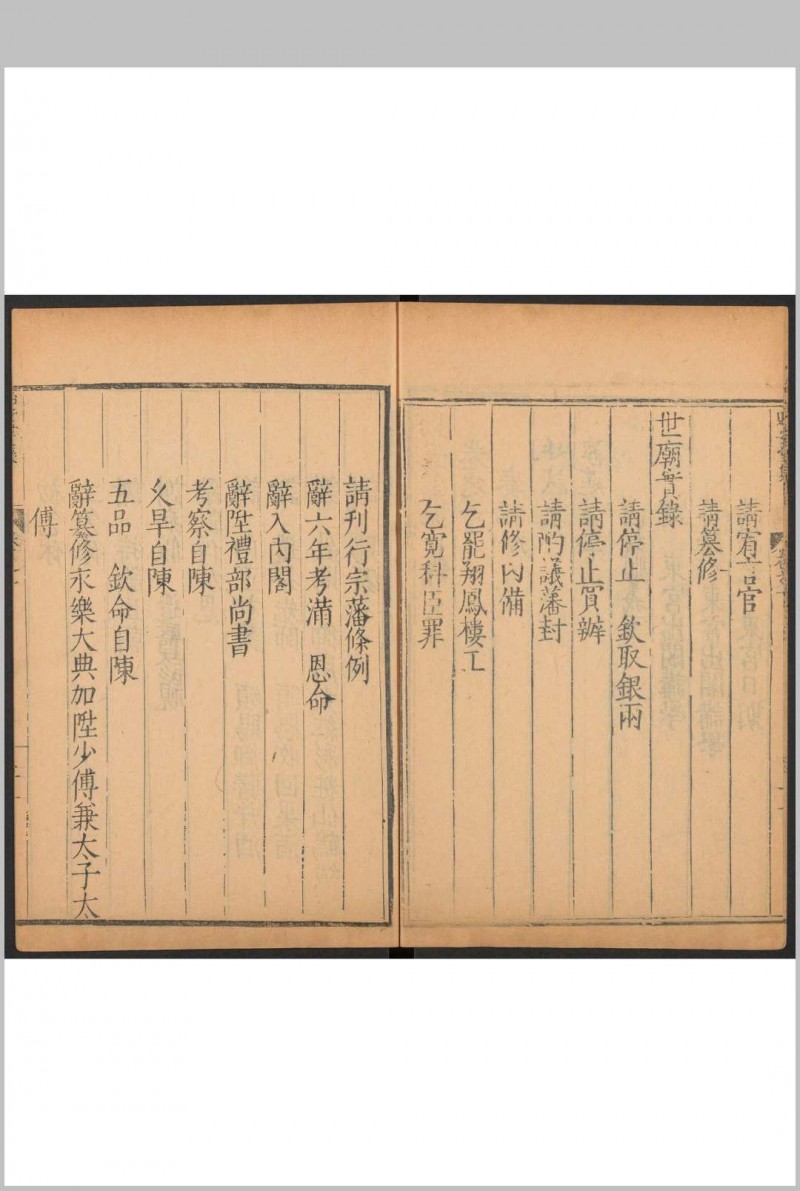 請宥言官
請纂修
世廟實錄
請停止　欽取銀兩
請停止買辦
請酌議藩封
請修內備
乞罷翔鳳樓工
乞寬科臣罪
請刊行宗藩條例
辭六年考滿　恩命
辭入內閣
辭陞禮部尚書
考察自陳
久旱自陳
五品　欽命自陳
辭纂修永樂大典加陞少傅兼太子太
傅